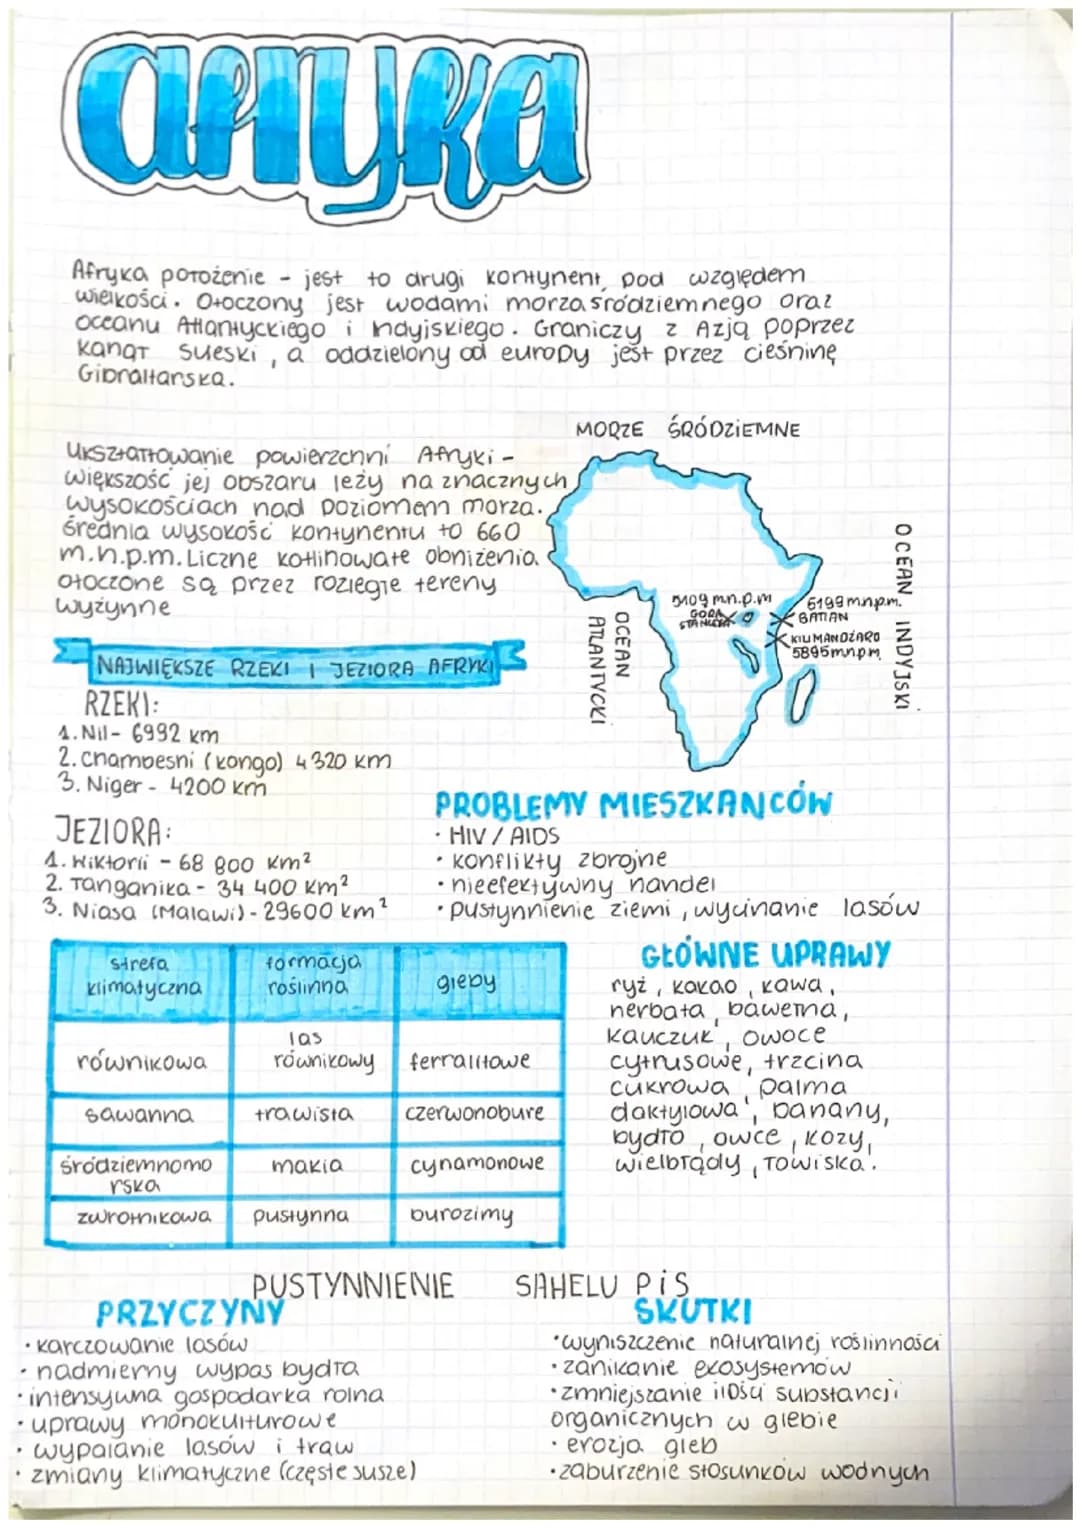 afryka
Afryka położenie - jest to drugi kontynent pod względem
wielkości. Otoczony jest wodami morza śródziemnego oraz
oceanu Atlantyckiego i Indyjskiego. Graniczy z Azją poprzez
kanał Sueski, a oddzielony od europy jest przez cieśninę
Gibraltarska.
MORZE ŚRÓDZIEMNE
Ukształtowanie powierzchni Afryki -
większość jej obszaru leży na znacznych
wysokościach nad poziomem morza.
średnia wysokość kontynentu to 660
m.n.p.m. Liczne kotlinowate obniżenia
otoczone są przez rozległe tereny
wyżynne
OCEAN INDYJSKI
OCEAN
ATLANTYCKI
5109 m.n.p.m
GÓRA
STANLEYA
6199 m.n.p.m.
BATIAN
KILIMANDŻARO
5895 m.n.p.m.
NAJWIĘKSZE RZEKI I JEZIORA AFRYKI
RZEKI:
1. Nil - 6992 km
2. Chambesni (kongo) 4 320 km
3. Niger - 4200 km
JEZIORA:
1. Wiktorii - 68 800 km²
2. Tanganika - 34 400 km²
3. Niasa (Malawi) - 29600 km²
PROBLEMY MIESZKAŃCÓW
· HIV / AIDS
· konflikty zbrojne
· nieefektywny handel
· pustynnienie ziemi, wycinanie lasów
strefa klimatyczna formacja roślinna gleby
równikowa las równikowy ferralitowe
sawanna trawista czerwonobure
śródziemnomorska makia cynamonowe
zwrotnikowa pustynna burozimy
GŁÓWNE UPRAWY
ryż, kakao, kawa,
herbata, bawełna,
kauczuk, owoce
cytrusowe, trzcina
cukrowa, palma
daktylowa, banany,
bydło, owce, kozy,
wielbłądy, łowiska.
PUSTYNNIENIE SAHELU PiS
PRZYCZYNY
· karczowanie lasów
· nadmierny wypas bydła
· intensywna gospodarka rolna
· uprawy monokulturowe
· wypalanie lasów i traw
· zmiany klimatyczne (częste susze)
SKUTKI
· wyniszczenie naturalnej roślinności
· zanikanie ekosystemów
· zmniejszanie ilości substancji
organicznych w glebie
· erozja gleb
· zaburzenie stosunków wodnych